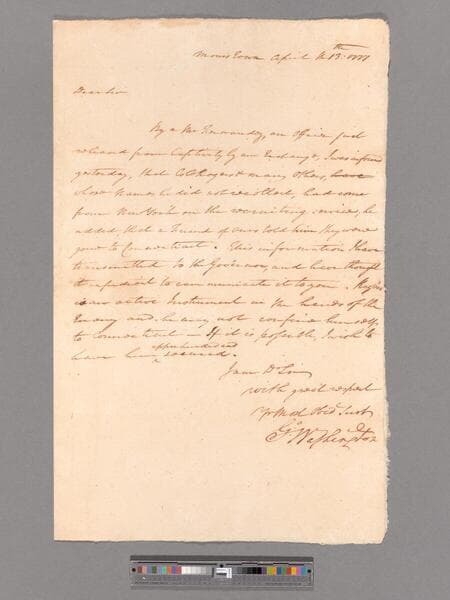 Morris Town April the 13th 1777
Dear Sir
By a Mr Fernandez, an officer just
released from Captivity by an Exchange, I was informed
yesterday, that Col. Rogers & many others, have
whose names he did not recollect, had come
from New York on the recruiting service, he
added, that a Friend of ours told him they were
gone to Connecticut. This information I have
transmitted to the Governor, and have thought
it expedient to communicate it to you. Rogers
is an active Instrument in the hands of the
Enemy and he may not confine himself
to Connecticut - If it is possible, I wish to
have him apprehended secured.
I am Dr Sir
with great respect
Yr Most Obed Servt
Go: Washington